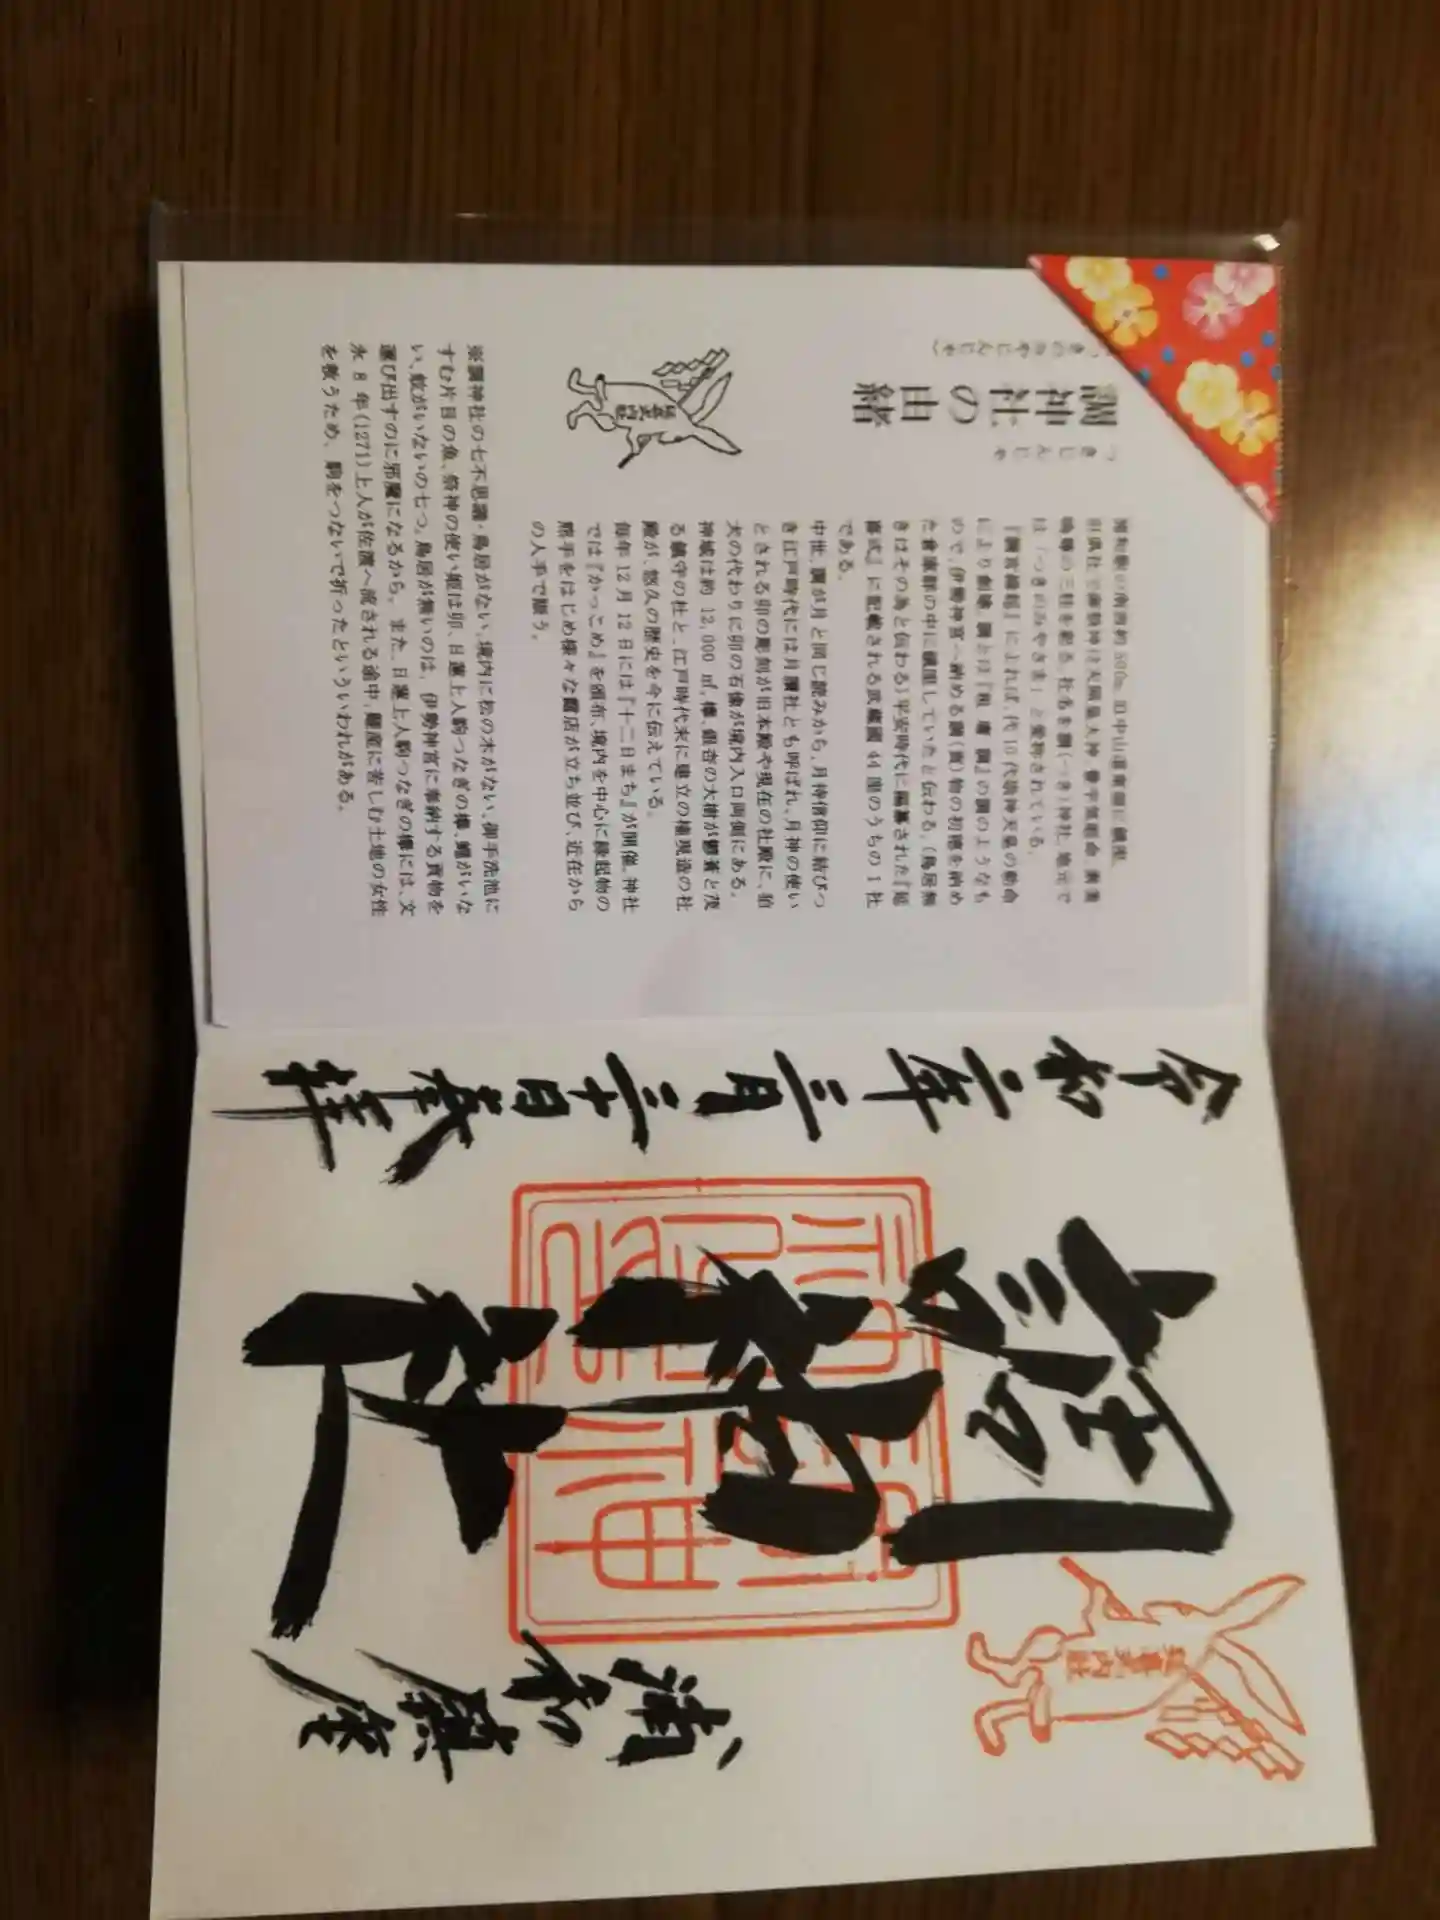 調神社の由緒
つきじんじゃ
(つきのみやじんじゃ)
浦和駅の南西約500m、旧中山道東側に鎮座。
旧県社で御祭神は天照皇大神、豊宇気姫命、素戔
嗚尊の三柱を祀る。社名を調(つき)神社、地元で
は「つきのみやさま」と愛称されている。
『調宮縁起』によれば、代10代崇神天皇の勅命
により創建、調とは『租 庸 調』の調のようなも
ので、伊勢神宮へ納める調(貢)物の初穂を納め
た倉庫群の中に鎮座していたと伝わる。(鳥居無
きはその為と伝わる)平安時代に編纂された『延
喜式』に記載される武蔵國44座のうちの1社
である。
中世、調が月と同じ読みから、月待信仰に結びつ
き江戸時代には月讀社とも呼ばれ、月神の使い
とされる卯の彫刻が旧本殿や現在の社殿に、狛
犬の代わりに卯の石像が境内入口両側にある。
神域は約 12,000 ㎡、欅、銀杏の大樹が鬱蒼と茂
る鎮守の杜と、江戸時代末に建立の権現造の社
殿が、悠久の歴史を今に伝えている。
毎年12月12日には『十二日まち』が開催。神社
では『かっこめ』を頒布、境内を中心に縁起物の
熊手をはじめ様々な露店が立ち並び、近在から
の人手で賑う。
延喜式内社
※調神社の七不思議・鳥居がない、境内に松の木がない、御手洗池に
すむ片目の魚、祭神の使い姫は卯、日蓮上人駒つなぎの欅、蠅がいな
い、蚊がいないの七つ。鳥居が無いのは、伊勢神宮に奉納する貢物を
運び出すのに邪魔になるから。また、日蓮上人駒つなぎの欅には、文
永8年(1271)上人が佐渡へ流される途中、難産に苦しむ土地の女性
を救うため、駒をつないで祈ったといういわれがある。
延喜式内社
浦和鎮座
調神社
令和二年三月二十日奉拝